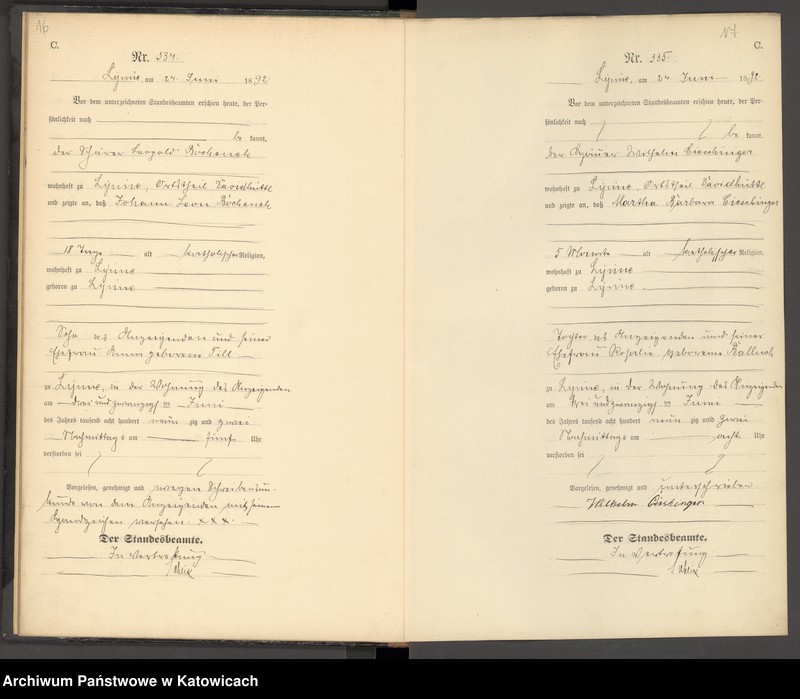 16
C.
Nr. 334.
Lipine, am 24. Juni 1892.
Vor dem unterzeichneten Standesbeamten erschien heute, der Per-
sönlichkeit nach
be kannt,
der Schürer Leopold
wohnhaft zu Lipine, Ortstheil
und zeigte an, daß Johann Leon
18 Tage alt katholischer Religion,
wohnhaft zu Lipine
geboren zu Lipine
Sohn des Anzeigenden und seiner
Ehefrau Anna geborene Till
zu Lipine, in der Wohnung des Anzeigenden
am drei und zwanzigsten Juni
des Jahres tausend acht hundert neun zig und zwei
Nachmittags um fünf Uhr
verstorben sei
Vorgelesen, genehmigt und wegen Schreibensun-
kunde von dem Anzeigenden mit seinem
Handzeichen versehen. XXX.
Der Standesbeamte.
In Vertretung
17
C.
Nr. 335.
Lipine, am 24 Juni 1892
Vor dem unterzeichneten Standesbeamten erschien heute, der Per-
sönlichkeit nach
be kannt,
der Häuer Wilhelm
wohnhaft zu Lipine, Ortstheil
und zeigte an, daß Martha Barbara
5 Monate alt katholischer Religion,
wohnhaft zu Lipine
geboren zu Lipine
Tochter des Anzeigenden und seiner
Ehefrau Rosalie geborene
zu Lipine, in der Wohnung des Anzeigenden
am drei und zwanzigsten Juni
des Jahres tausend acht hundert neun zig und zwei
Nachmittags um acht Uhr
verstorben sei
Vorgelesen, genehmigt und unterschrieben
Wilhelm
Der Standesbeamte.
In Vertretung
Archiwum Państwowe w Katowicach